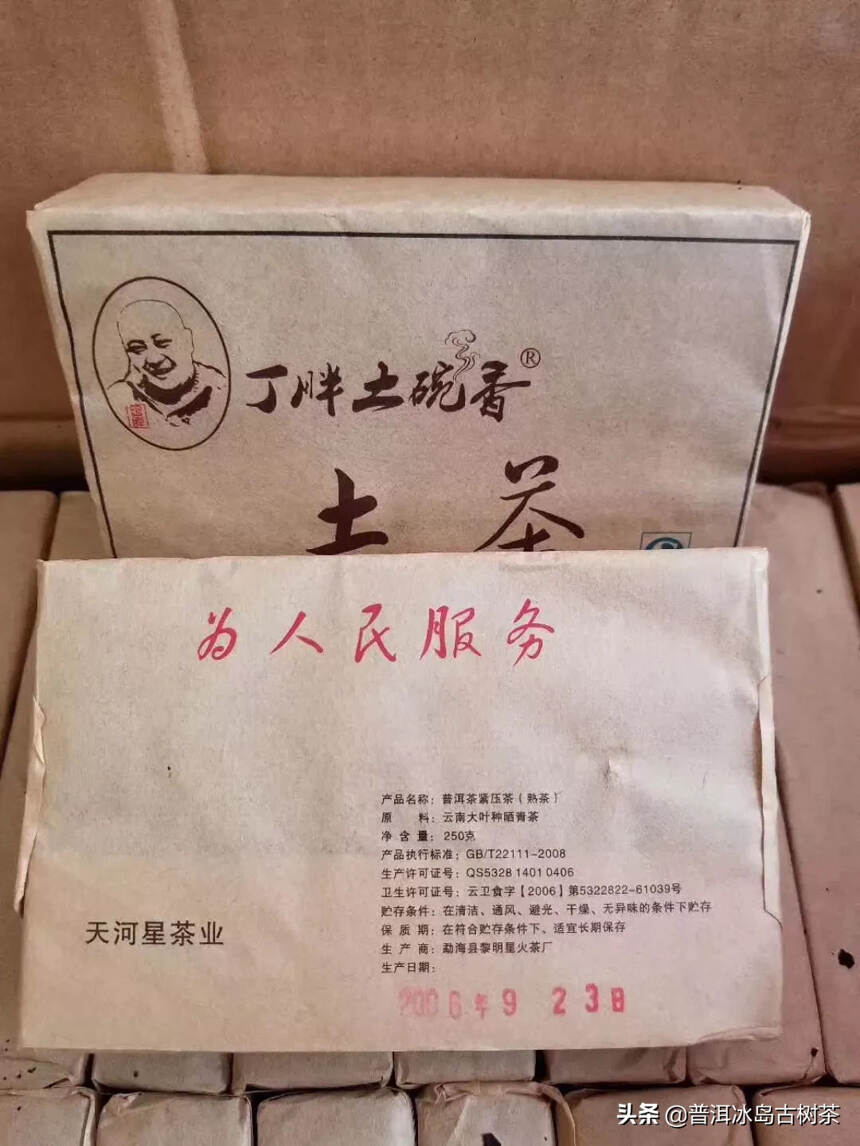 丁胖土碗香®
土茶
为人民服务
产品名称：普洱茶紧压茶（熟茶）
原　　料：云南大叶种晒青茶
净 含 量：250克
产品执行标准：GB/T22111-2008
生产许可证号：QS5328 1401 0406
卫生许可证号：云卫食字【2006】第5322822-61039号
贮存条件：在清洁、通风、避光、干燥、无异味的条件下贮存
保 质 期：在符合贮存条件下、适宜长期保存
生 产 商：勐海县黎明星火茶厂
生产日期：
2006年9 23日
天河星茶业
头条 @普洱冰岛古树茶